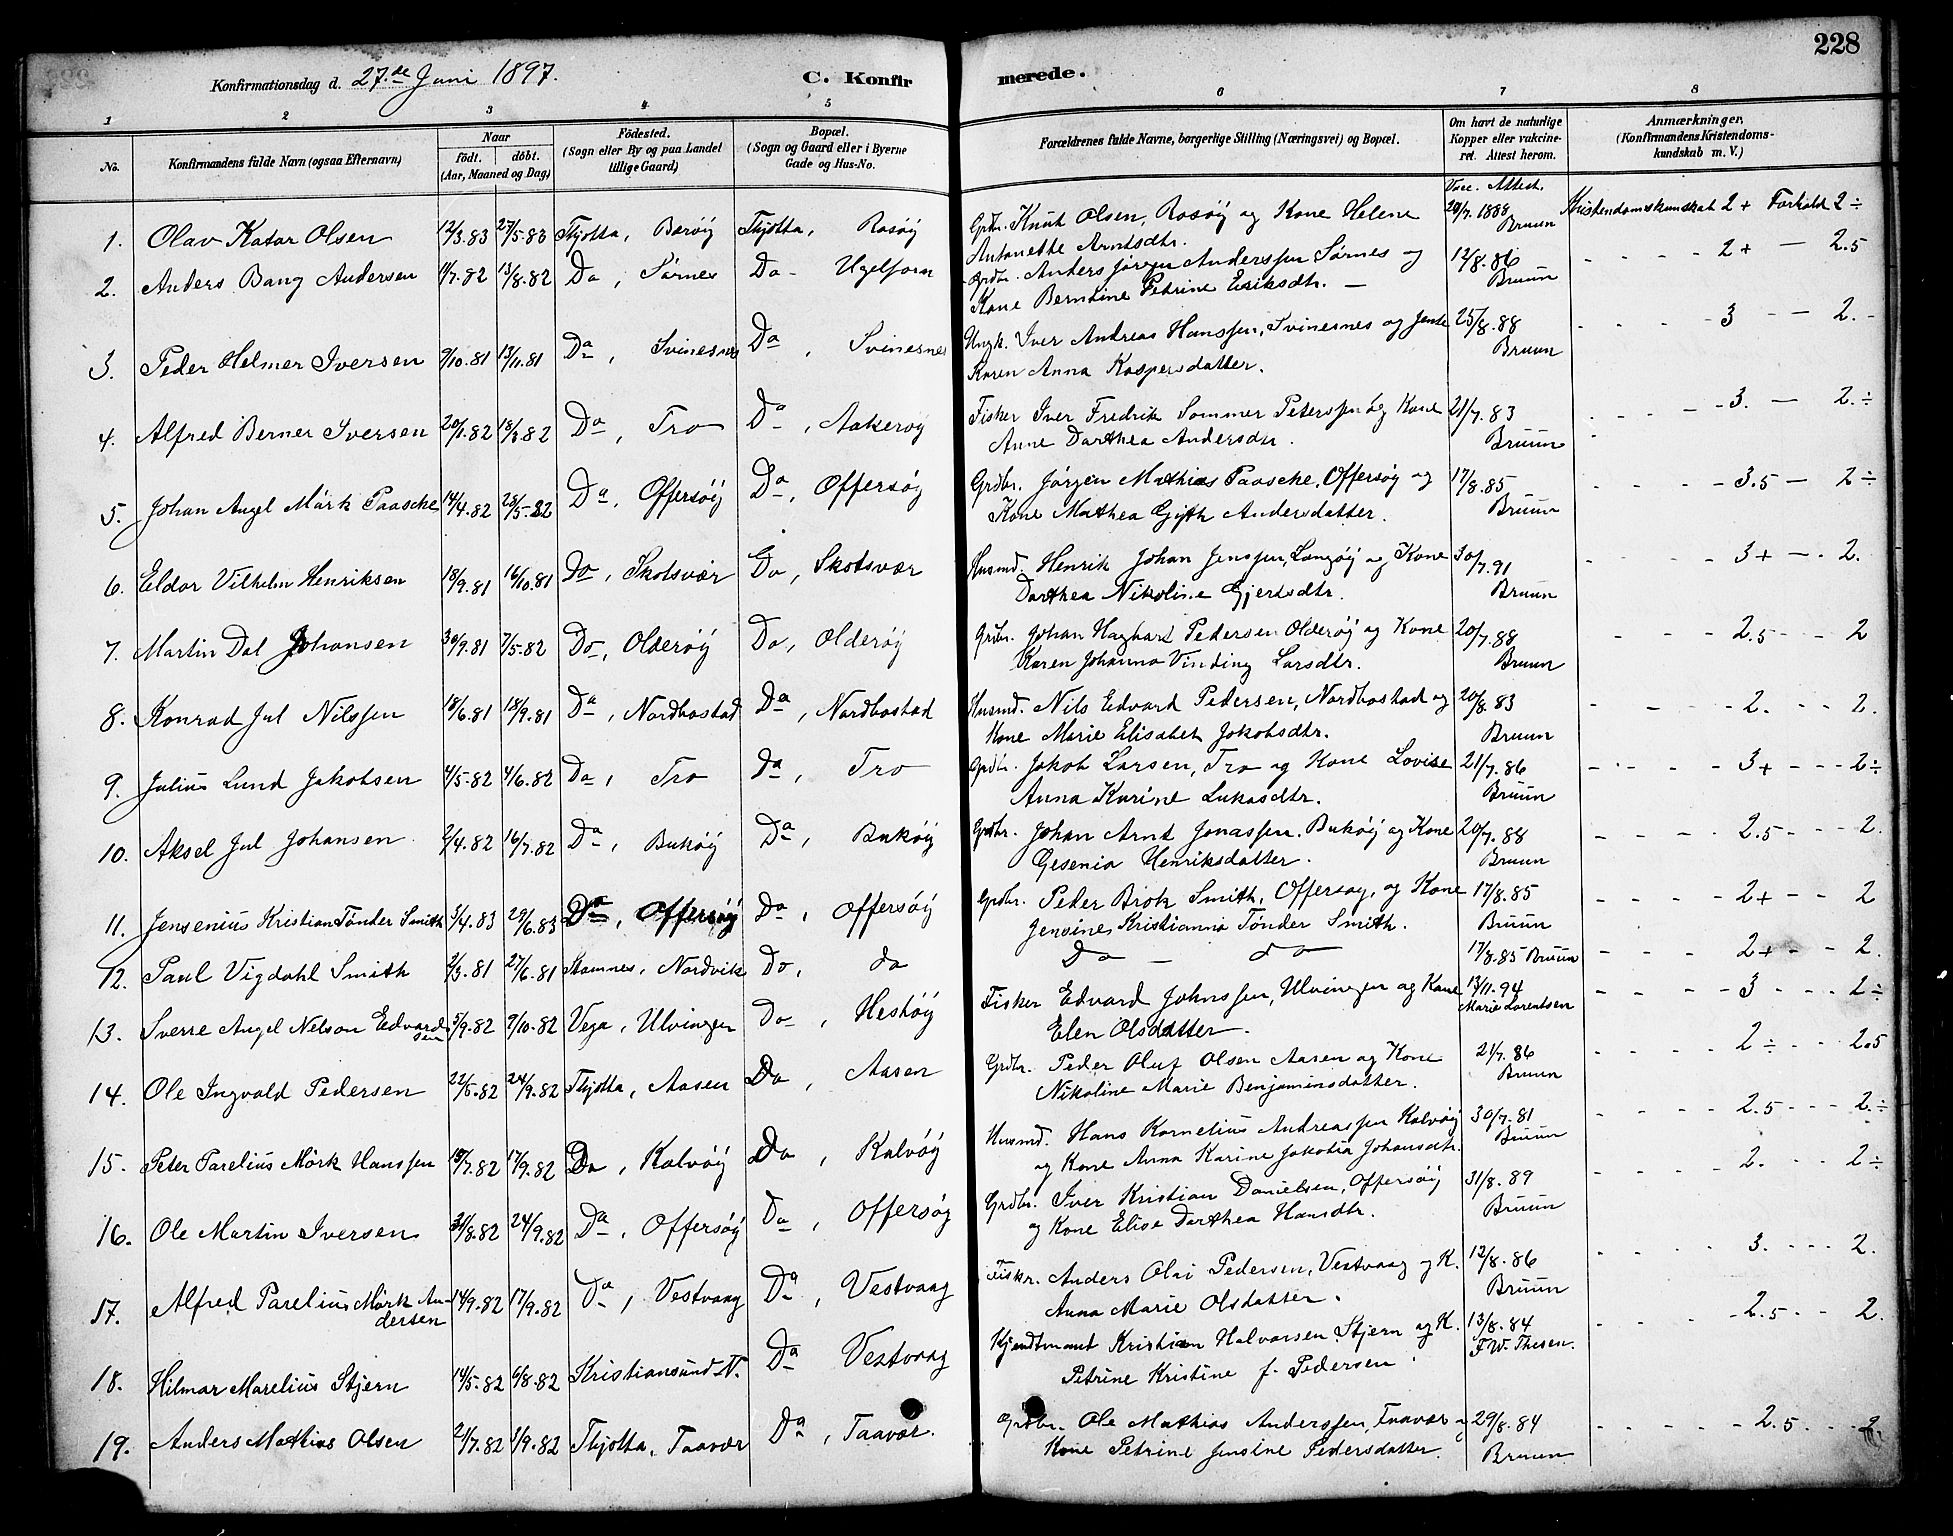 228
Konfirmationsdag d. 27.de Juni 1897.
C. Konfirmerede.
1 2 3 4 5 6 7 8
No. Konfirmandens fulde Navn (ogsaa Efternavn) Naar födt. döbt. (Aar, Maaned og Dag) Födested. (Sogn eller By og paa Landet tillige Gaard) Bopæl. (Sogn og Gaard eller i Byerne Gade og Hus-No. Forældrenes fulde Navne, borgerlige Stilling (Næringsvei) og Bopæl. Om havt de naturlige Kopper eller vakcineret. Attest herom. Anmærkninger, (Konfirmandens Kristendomskundskab m. V.)
Vacc. Attest.
1. Olav Kator Olsen 12/3.83 27/5.83 Thjotta, Barøy Thjotta, Rosøy Grdbr. Knut Olsen, Rosøy og Kone Helene 20/7.1888 Kristendomskunskab 2+ Forhold 2÷
Antonette Arntsdtr. Bruun
2. Anders Bang Andersen 11/7.82 13/8.82 Do, Sørnes Do - Ugelforn Grdbr. Anders Jørgen Anderssen Sørnes og 12/8.86 2+ - 2.5
Kone Berntine Petrine Eriksdtr. - Bruun
3. Peder Helmer Iversen 9/10.81 13/11.81 Do, Svinesnes Do, Svinesnes Ungk. Iver Andreas Hanssen, Svinesnes og Jente 25/8.88 3 - 2.
Karen Anna Kaspersdatter. Bruun
4. Alfred Berner Iversen 20/1.82 18/3.82 Do, Tro Do, Aakerøy Fisker Iver Fredrik Sommer Peterssen og Kone 21/7.83 3. - 2.÷
Anne Darthea Andersdtr. Bruun
5. Johan Angel Mörk Paasche 14/4.82 28/5.82 Do, Offersøy Do, Offersøy Grdbr. Jørgen Mathias Paasche, Offersøy og 17/8.85 3.5 - 2÷
Kone Mathea Gjøth Andersdatter. Bruun
6. Eldor Vilhelm Henriksen 18/9.81 16/10.81 Do, Skotsvær Do, Skotsvær Husmd. Henrik Johan Jenssen, Langøy og Kone 30/7.91 3+ - 2.
Darthea Nikoline Gjertsdtr. Bruun
7. Martin Dol Johansen 30/9.81 7/5.82 Do, Olderøy Do, Olderøy Grdbr. Johan Hagbart Pedersen Olderøy og Kone 20/7.88 2.5 - 2
Karen Johanna Vinding Larsdtr. Bruun
8. Konrad Jul Nilssen 18/6.81 18/9.81 Do, Nordbostad Do, Nordbostad Husmd. Nils Edvard Pedersen, Nordbostad og 20/8.83 2. - 2.
Kone Marie Elisabet Jakobsdtr. Bruun
9. Julius Lund Jakobsen 4/5.82 4/6.82 Do, Tro Do, Tro Grdbr. Jakob Larsen, Tro og Kone Lovise 21/7.86 3+ - 2÷
Anna Karine Lukasdtr. Bruun
10. Aksel Jul Johansen 2/4.82 16/7.82 Do, Bukøy Do, Bukøy Grdbr. Johan Arnt Jonassen. Bukøy og Kone 20/7.88 2.5 - 2.
Gesenia Henriksdatter. Bruun
11. Jensenius Kristian Tønder Smith 3/4.83 29/6.83 Do, Offersøy Do, Offersøy Grdbr. Peder Brok Smith, Offersøy, og Kone 17/8.85 2+ - 2
Jensine Kristianna Tønder Smith. Bruun
12. Paul Vigdahl Smith 2/3.81 27/6.81 Stamnes, Nordvik Do, do Do - do 17/8.85 Bruun 2+ - 2.
13. Sverre Angel Nelson Edvardsen 5/9.82 9/10.82 Vega, Ulvingen Do, Hestøy Fisker Edvard Johnssen, Ulvingen og Kone 13/11.94 3 - 2÷
Elen Olsdatter. Marie Lorentsen
14. Ole Ingvald Pedersen 22/5.82 24/9.82 Thjotta, Aasen Do, Aasen Grdbr. Peder Oluf Olsen Aasen og Kone 21/7.86 2÷ - 2.5
Nikoline Marie Benjaminsdatter. Bruun
15. Peter Parelius Mörk Hanssen 19/7.82 17/9.82 Do, Kalvøy Do, Kalvøy Husmd. Hans Kornelius Andreassen Kalvøy 30/7.81 2.5 - 2.÷
og Kone Anna Karine Jakobia Johansdtr. Bruun
16. Ole Martin Iversen 31/8.82 24/9.82 Do, Offersøy Do, Offersøy Grdbr. Iver Kristian Danielsen, Offersøy 31/8.89 2. - 2÷
og Kone Elise Darthea Hansdtr. Bruun
17. Alfred Parelius Mørk Andersen 14/9.82 17/9.82 Do, Vestvaag Do, Vestvaag Fiskr. Anders Olai Pedersen, Vestvaag og K. 12/8.86 3. - 2.
Anna Marie Olsdatter. Bruun
18. Hilmar Marelius Stjern 14/5.82 6/8.82 Kristiansund N. Do, Vestvaag Kjendtmant Kristian Halvorsen Stjern og K. 13/8.84 2.5 - 2.
Petrine Kristine f. Pedersen F.W. Thesen.
19. Anders Mathias Olsen 2/7.82 3/9.82 Thjotta, Taavær Do, Taavær. Grdbr. Ole Mathias Anderssen, Taavær og 29/8.84 2.5 - 2
Kone Petrine Jensine Pedersdatter. Bruun